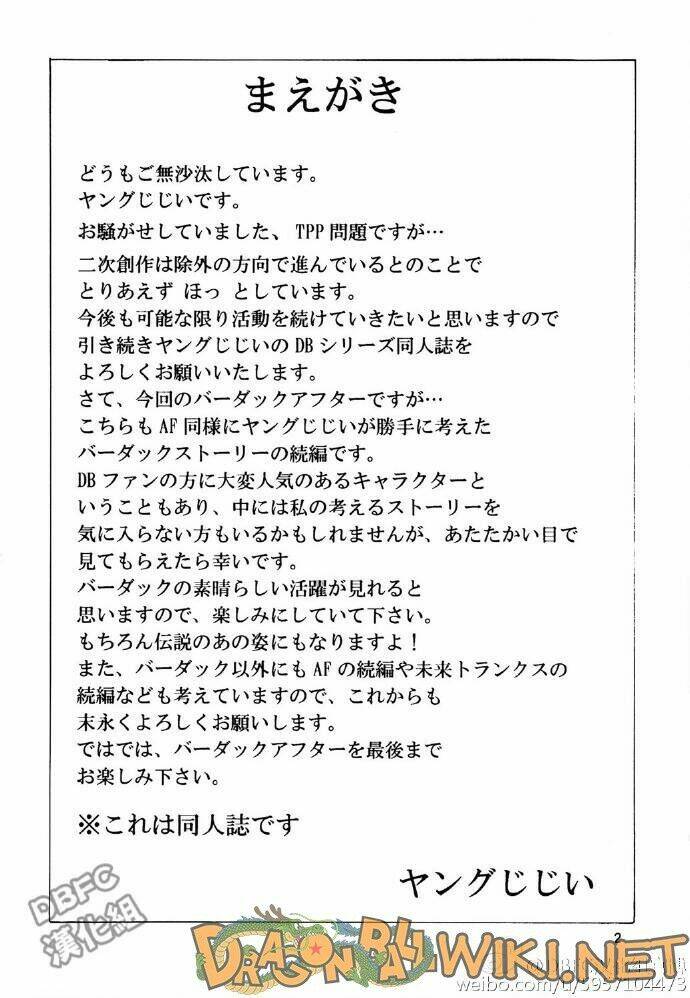 まえがき
どうもご無沙汰しています。
ヤングじじいです。
お騒がせしていました、TPP問題ですが…
二次創作は除外の方向で進んでいるとのことで
とりあえず ほっ としています。
今後も可能な限り活動を続けていきたいと思いますので
引き続きヤングじじいのDBシリーズ同人誌を
よろしくお願いいたします。
さて、今回のバーダックアフターですが…
こちらもAF同様にヤングじじいが勝手に考えた
バーダックストーリーの続編です。
DBファンの方に大変人気のあるキャラクターと
いうこともあり、中には私の考えるストーリーを
気に入らない方もいるかもしれませんが、あたたかい目で
見てもらえたら幸いです。
バーダックの素晴らしい活躍が見れると
思いますので、楽しみにしていて下さい。
もちろん伝説のあの姿にもなりますよ！
また、バーダック以外にもAFの続編や未来トランクスの
続編なども考えていますので、これからも
末永くよろしくお願いします。
ではでは、バーダックアフターを最後まで
お楽しみ下さい。
※これは同人誌です
ヤングじじい
DBFC
漢化組
2
DRAGON BALL WIKI.NET
weibo.com/u/3957104473